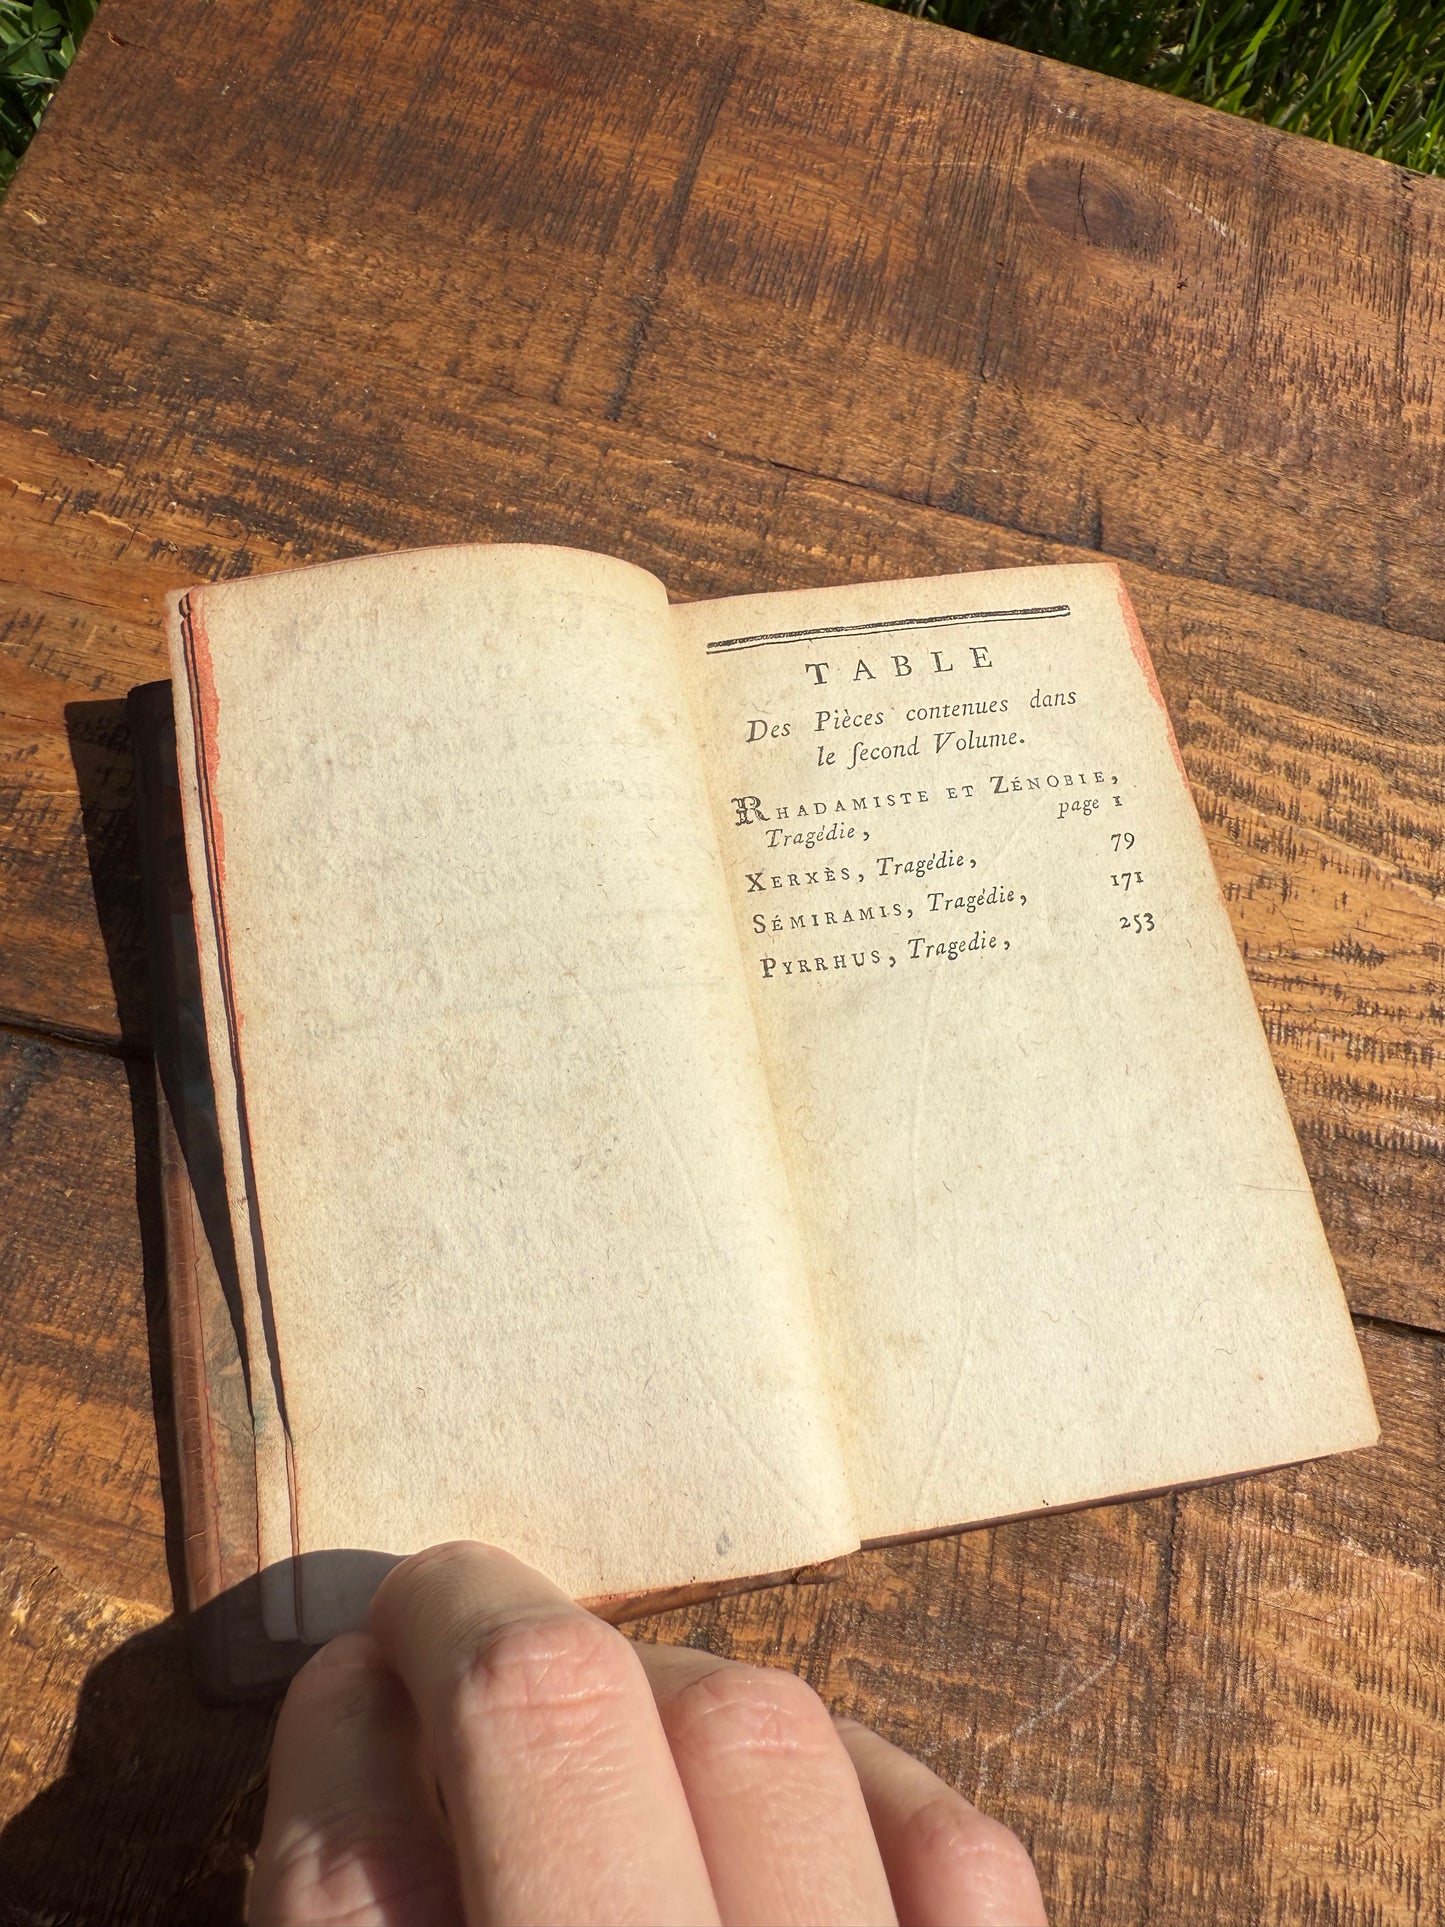 TABLE
Des Pièces contenues dans
le ſecond Volume.
RHADAMISTE ET ZÉNOBIE,
Tragédie, page 1
XERXÈS, Tragédie, 79
SÉMIRAMIS, Tragédie, 171
PYRRHUS, Tragedie, 253